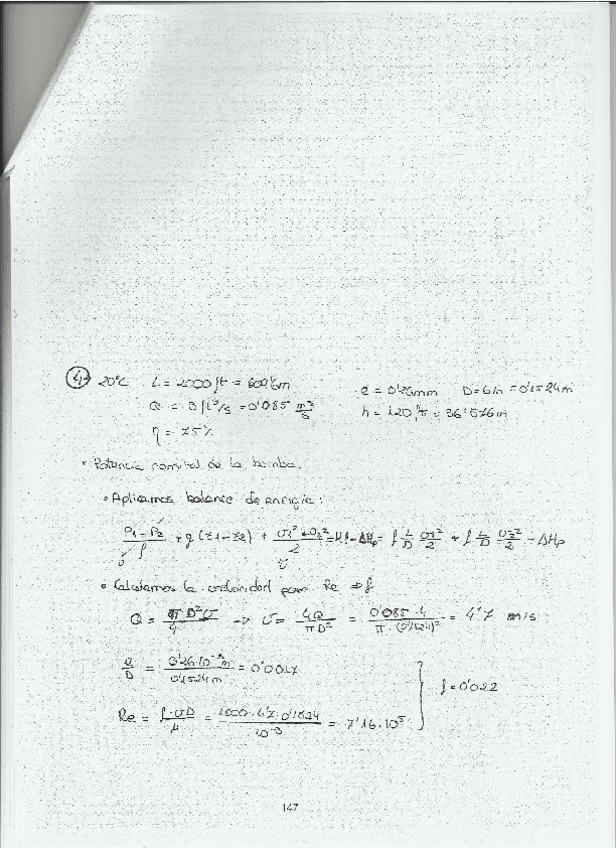 ④ 20°C L = 2000 ft = 609'6m e = 0'26mm D = 6in = 0'1524m
Q = 3 ft³/s = 0'085 m³/s h = 120 ft = 36'576m
η = 75%
• Potencia nominal de la bomba.
• Aplicamos balance de energía:
(P1 - P2)/ρ + g(z1-z2) + (v1² - v2²)/2 = Hf - ΔHp = f L/D v1²/2 + f L/D v2²/2 - ΔHp
• Calculamos la velocidad para Re ⇒ f
Q = πD²v/4 → v = 4Q/πD² = 0'085·4/π·(0'1524)² = 4'7 m/s
e/D = 0'26·10⁻³m/0'1524m = 0'0017
f = 0'022
Re = ρ·vD/μ = 1000·4'7·0'1524/10⁻³ = 7'16·10⁵
147